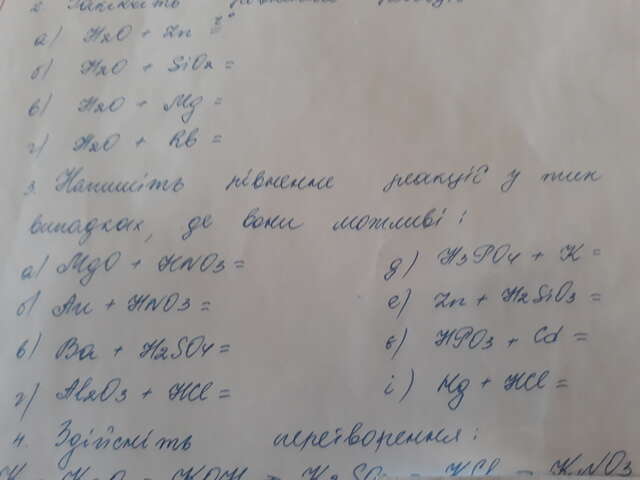 2. Закінчіть рівняння реакцій
а) H2O + Zn t°=
б) H2O + SiO2 =
в) H2O + Mg =
г) H2O + Rb =
3. Напишіть рівненне реакціє у тих
випадках, де вони можливі:
а) MgO + HNO3 =
б) Au + HNO3 =
в) Ba + H2SO4 =
г) Al2O3 + HCl =
д) H3PO4 + K =
е) Zn + H2SiO3 =
є) HPO3 + Cd =
і) Hg + HCl =
4. Здійсніть перетворення:
K – K2O – KOH – K2SO4 – KCl – KNO3